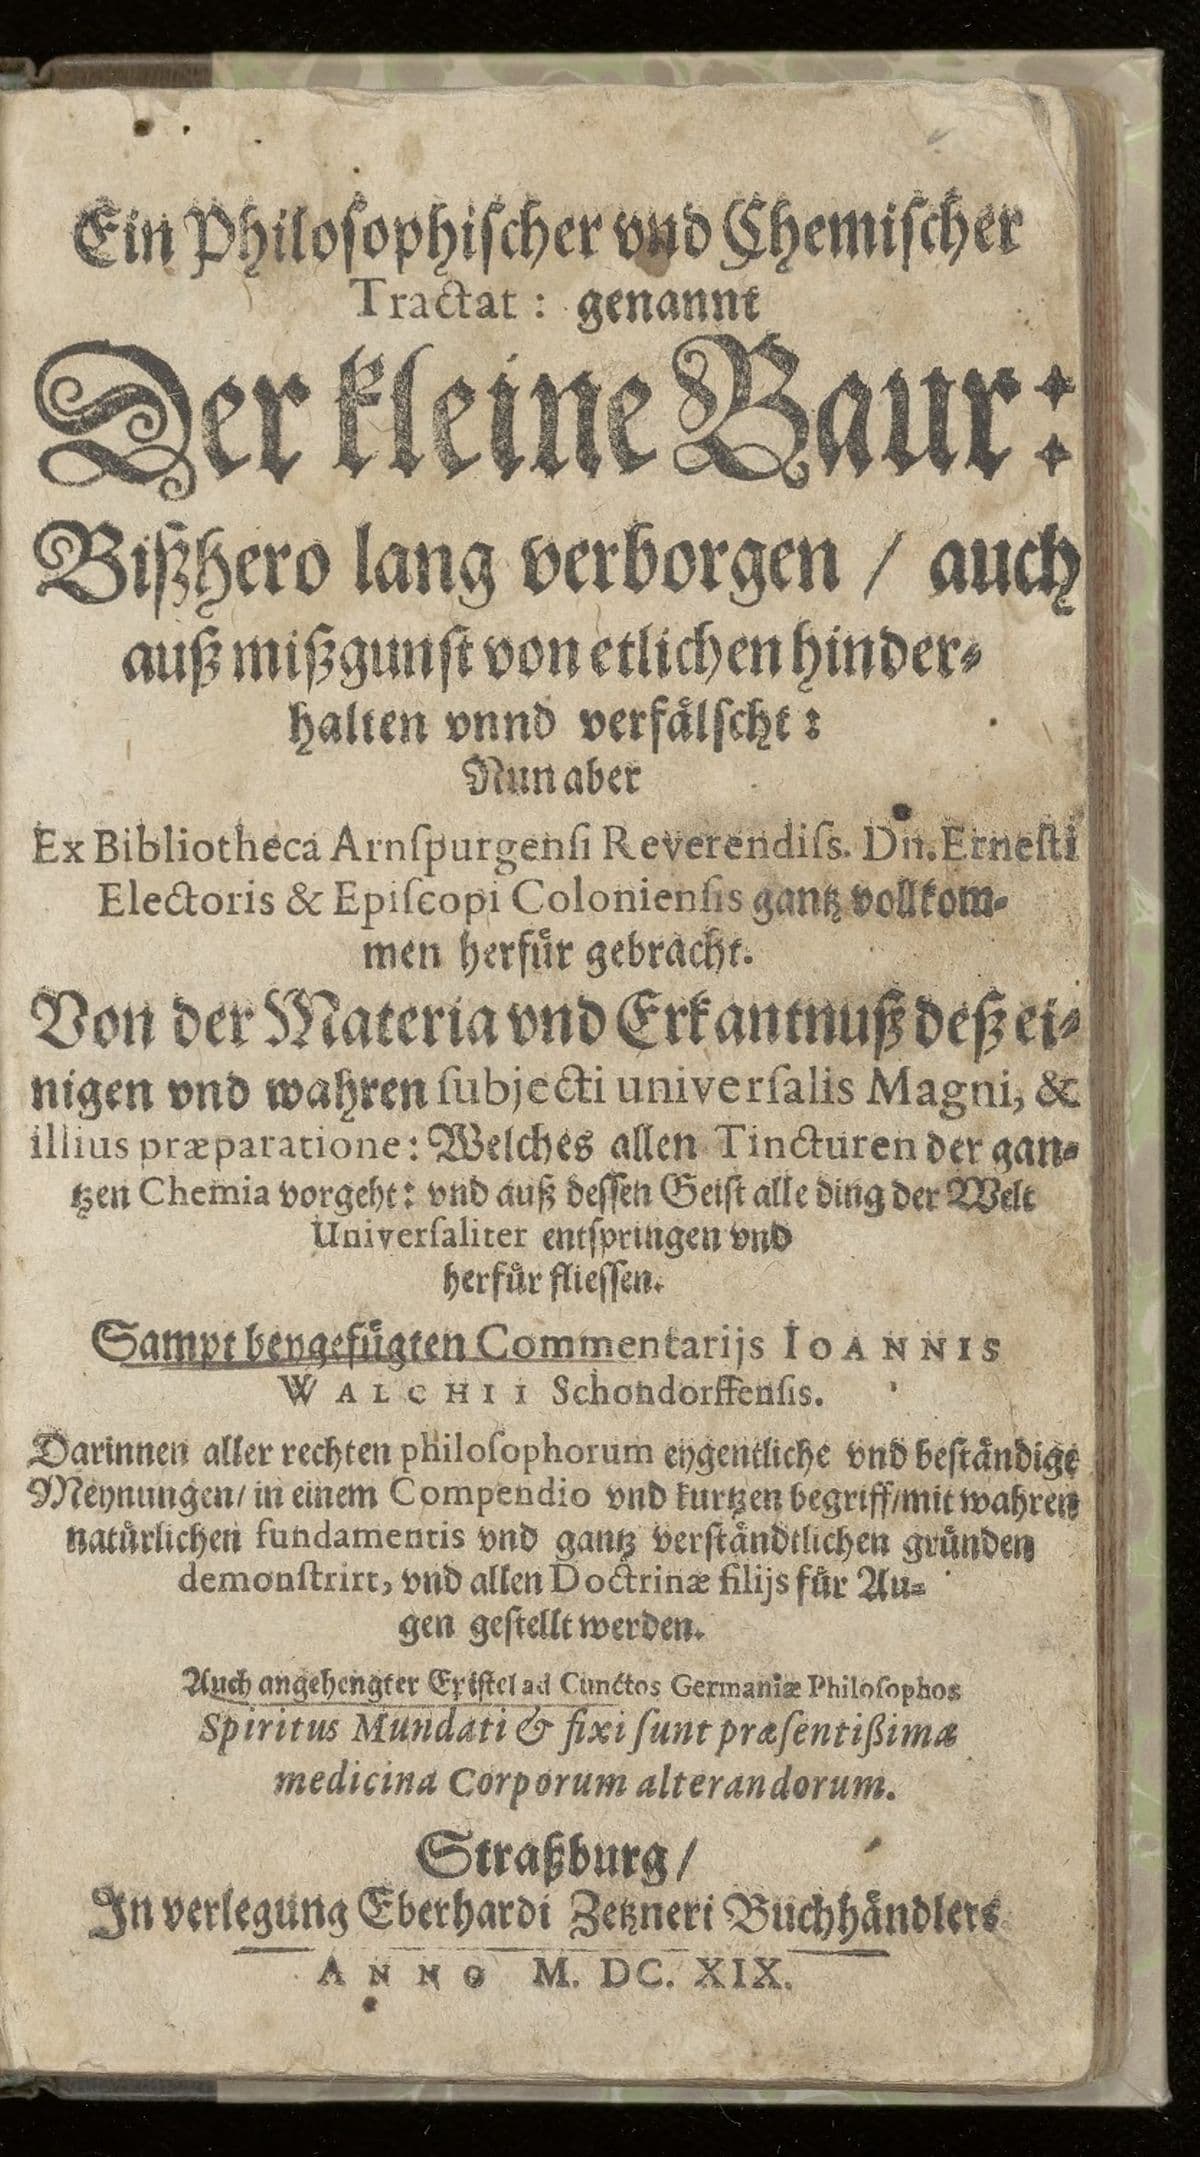 Ein Philosophischer vnd Chemischer
Tractat: genannt
Der kleine Baur:
Bißhero lang verborgen / auch
auß mißgunst von etlichen hinder-
halten vnnd verfälscht:
Nun aber
Ex Bibliotheca Arnſpurgenſi Reverendiſs. Dn. Erneſti
Electoris & Epiſcopi Colonienſis gantz vollkom-
men herfür gebracht.
Von der Materia vnd Erkantnuß deß ei-
nigen vnd wahren ſubjecti univerſalis Magni, &
illius præparatione: Welches allen Tincturen der gan-
tzen Chemia vorgeht: vnd auß dessen Geist alle ding der Welt
Univerſaliter entspringen vnd
herfür fliessen.
Sampt beygefügten Commentarijs IOANNIS
WALCHII Schondorffenſis.
Darinnen aller rechten philoſophorum eygentliche vnd beständige
Meynungen / in einem Compendio vnd kurtzen begriff / mit wahren
natürlichen fundamentis vnd gantz verständtlichen gründen
demonſtrirt, vnd allen Doctrinæ filijs für Au-
gen gestellt werden.
Auch angehengter Epistel ad Cunctos Germaniæ Philoſophos
Spiritus Mundati & fixi ſunt præſentißima
medicina Corporum alterandorum.
Straßburg /
In verlegung Eberhardi Zetzneri Buchhändlers
ANNO M. DC. XIX.